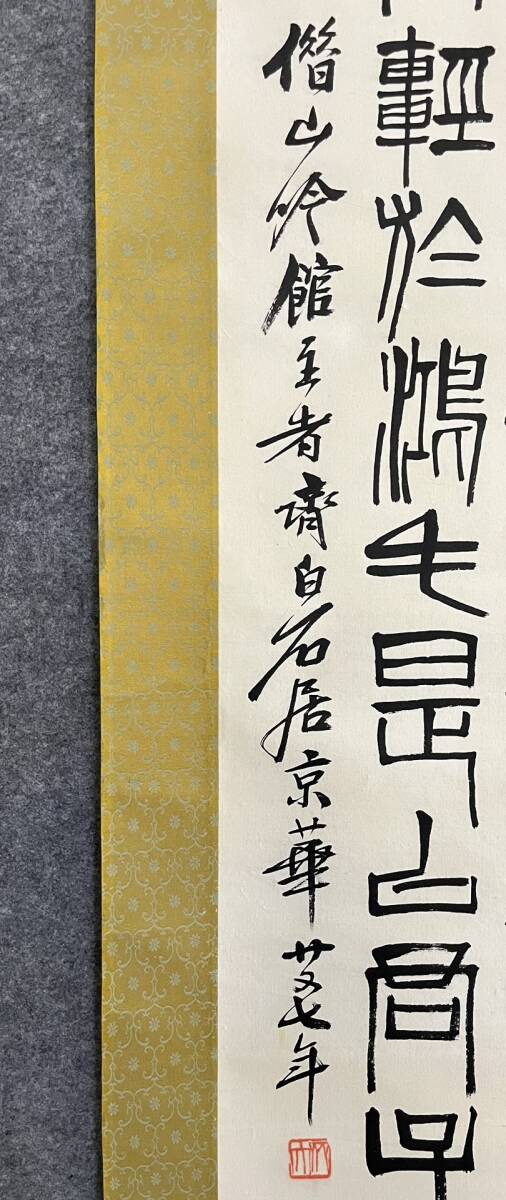 輕於鴻毛是以君子
借山吟館主者齊白石居京華廿又七年